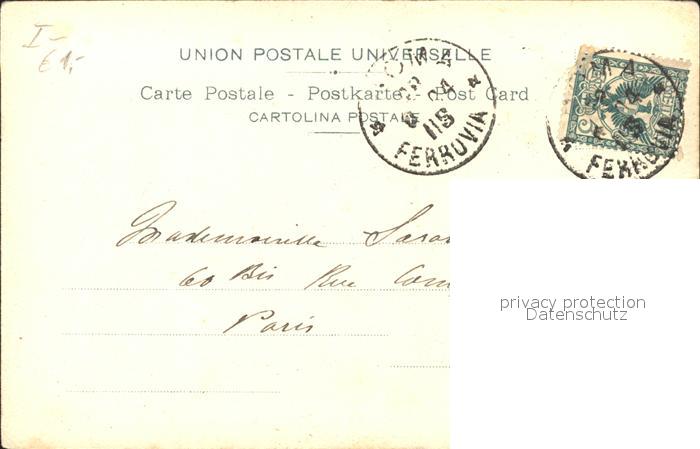 I-
€1,-
UNION POSTALE UNIVERSELLE
Carte Postale - Postkarte - Post Card
CARTOLINA POSTALE
ROMA
FERROVIA
FERROVIA
Mademoiselle
60 Bis Rue
Paris
privacy protection
Datenschutz